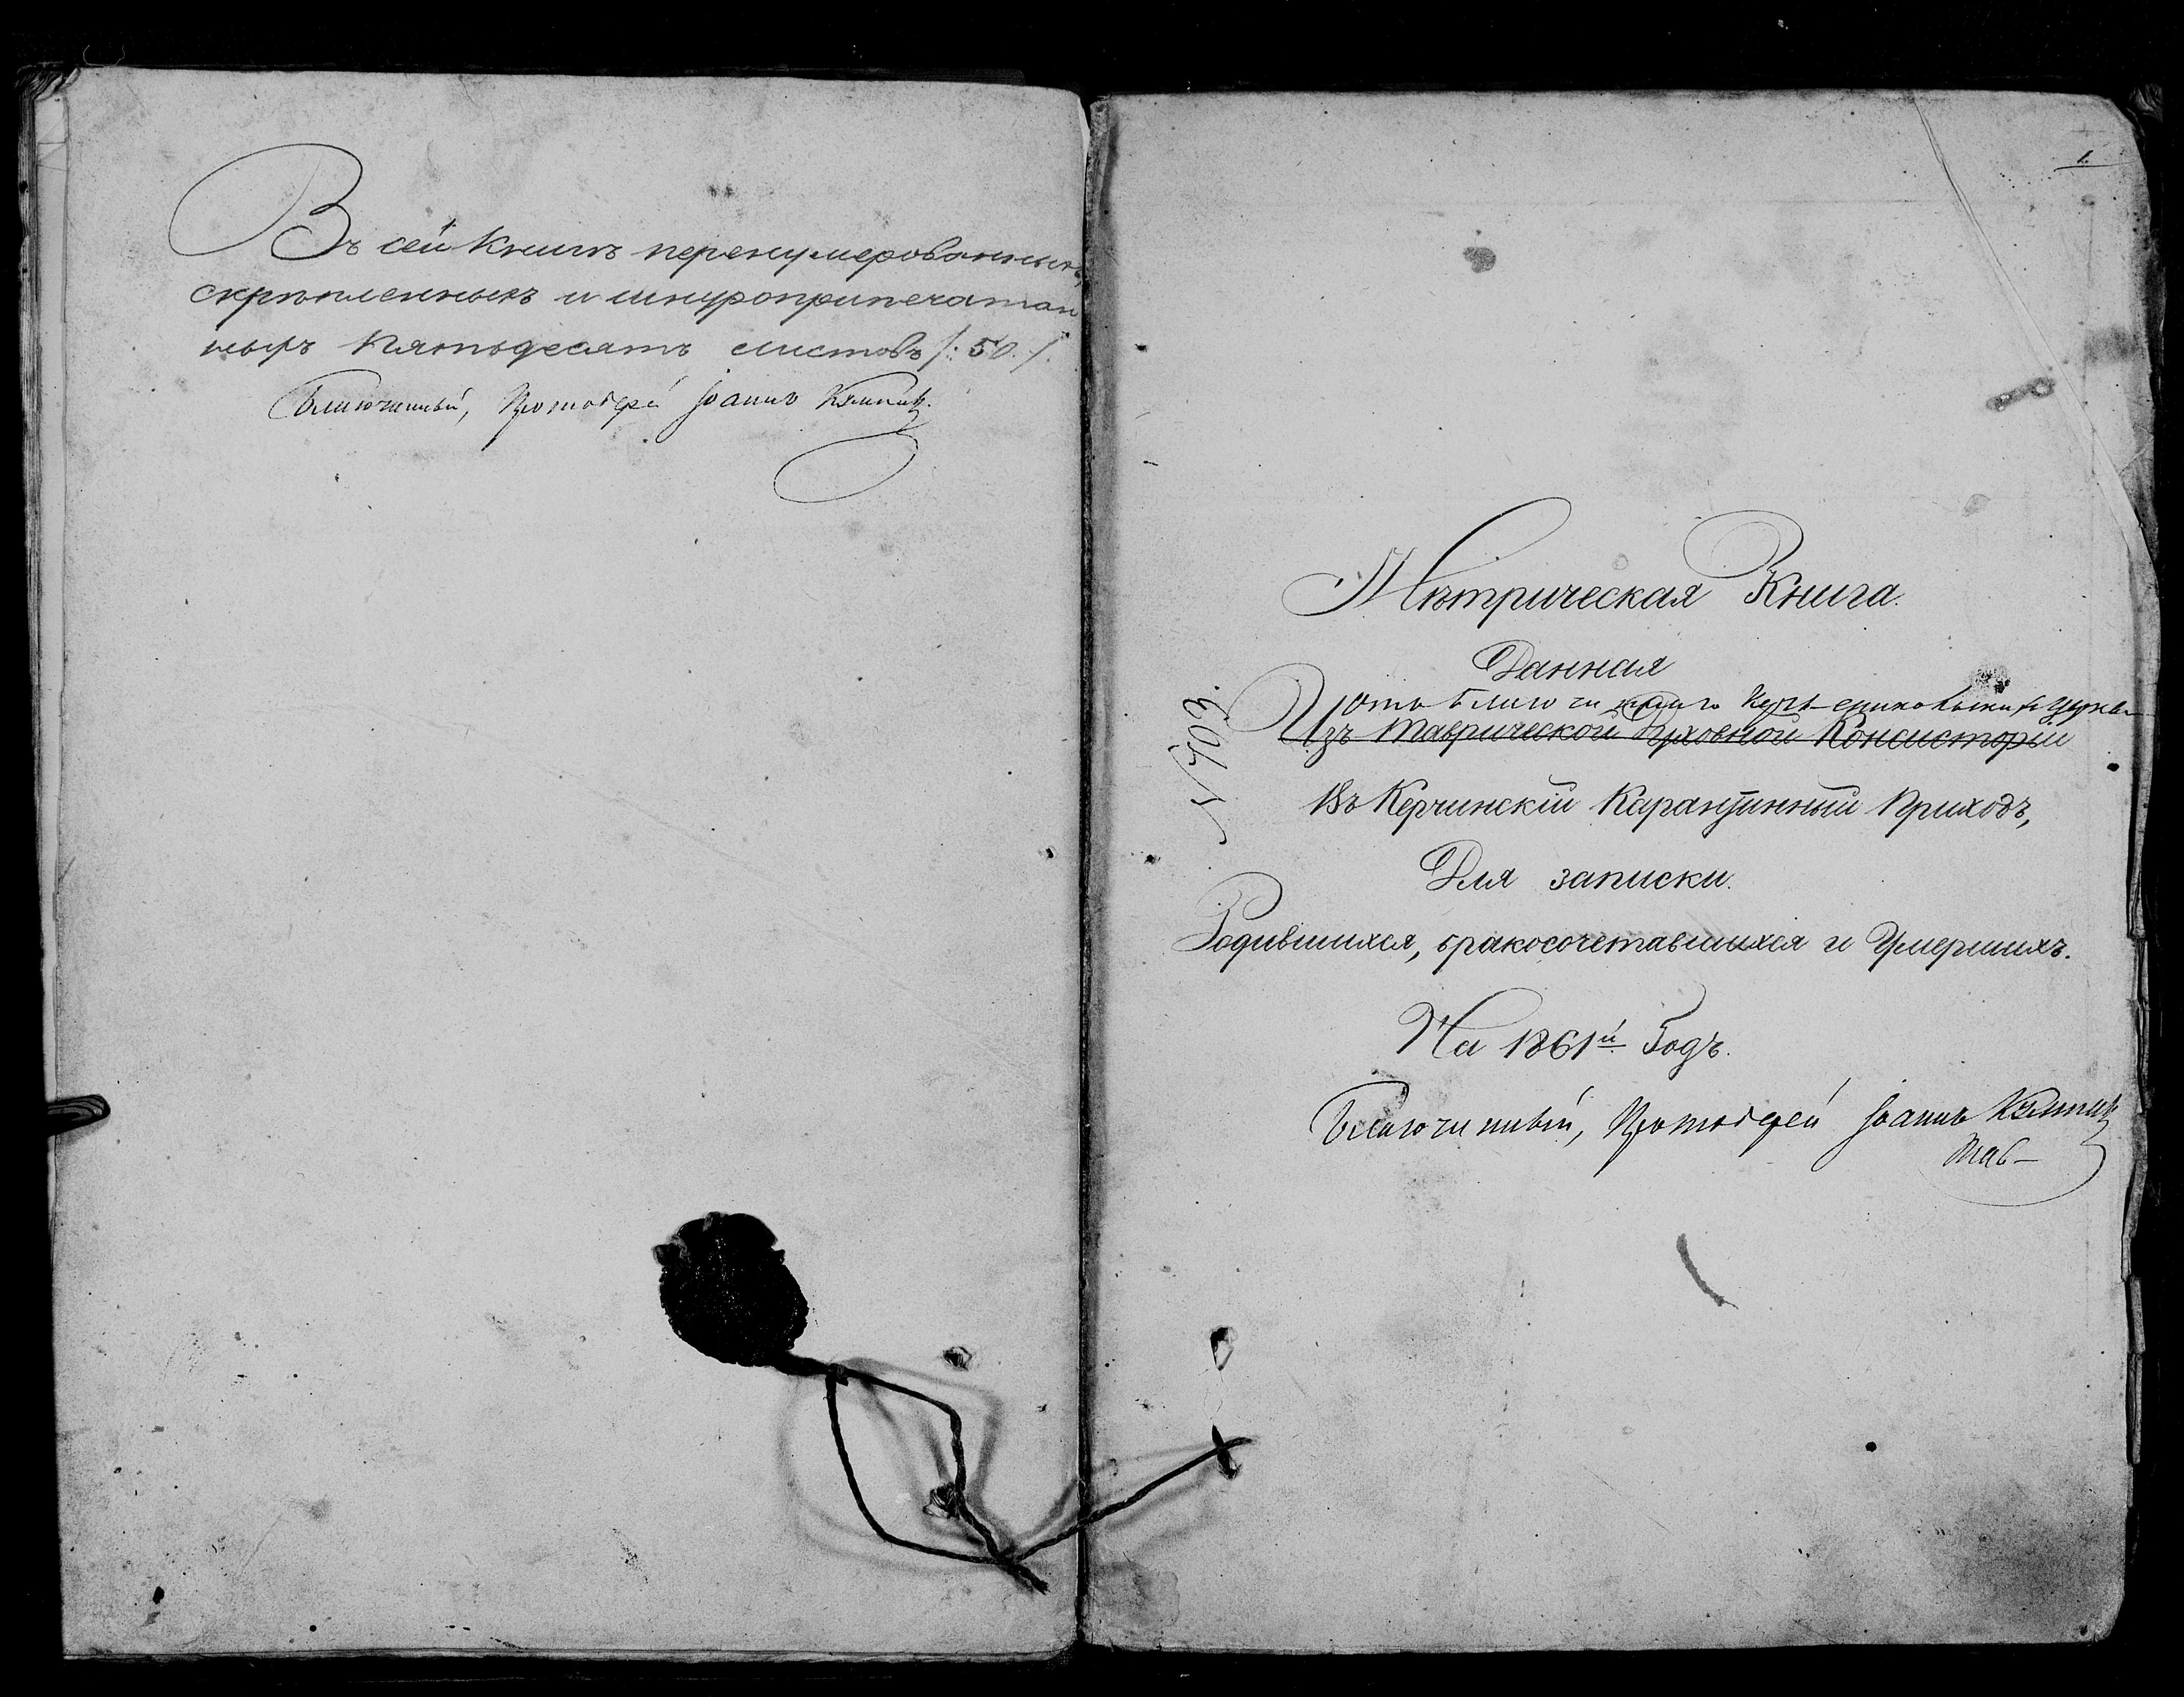 Въ сей Книгѣ перенумерованныхъ,
скрѣпленныхъ и шнуроприпечатан
ныхъ Пятьдесятъ листовъ /: 50. /.
Благочинный, Протоіерей Іоаннъ
1.
Мѣтрическая Книга.
Данная
отъ благочиннаго Керчь-еникольских Церкв
Изъ Таврической Духовной Консисторіи
Въ Керчинскій Карантинный Приходъ,
Для записки.
Родившихся, бракосочетавшихся и Умершихъ.
На 1861й Годъ.
Благочинный, Протоіерей Іоаннъ